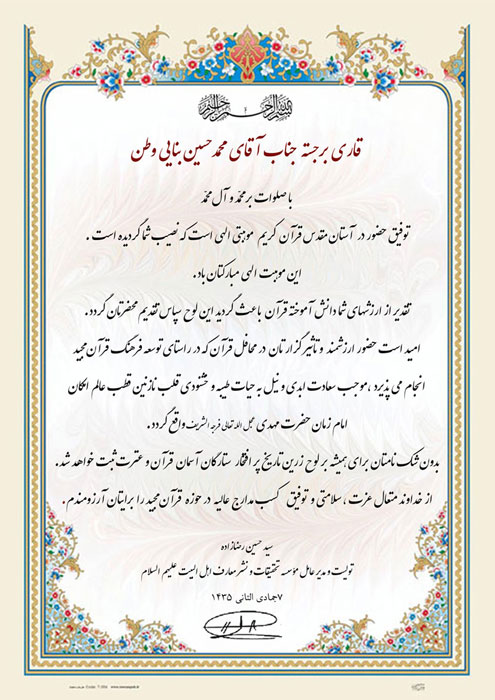 بسم الله الرحمن الرحیم
قاری برجسته جناب آقای محمدحسین بنایی وطن
با صلوات بر محمد و آل محمد
توفیق حضور در آستان مقدس قرآن کریم موهبتی الهی است که نصیب شما گردیده است .
این موهبت الهی مبارکتان باد .
تقدیر از ارزشهای شما دانش آموخته قرآن باعث گردید این لوح سپاس تقدیم محضرتان گردد.
امید است حضور ارزشمند و تأثیرگزارتان در محافل قرآن که در راستای توسعه فرهنگ قرآن مجید
انجام می پذیرد ، موجب سعادت ابدی و نیل به حیات طیبه و خشنودی قلب نازنین قطب عالم امکان
امام زمان حضرت مهدی عجل الله تعالی فرجه الشریف واقع گردد.
بدون شک نامتان برای همیشه بر لوح زرین تاریخ پر افتخار ستارگان آسمان قرآن و عترت ثبت خواهد شد.
از خداوند متعال عزت ، سلامتی و توفیق کسب مدارج عالیه در حوزه قرآن مجید را برایتان آرزومندم .
سید حسین رضازاده
تولیت و مدیر عامل مؤسسه تحقیقات و نشر معارف اهل البیت علیهم السلام
۷جمادی الثانی ۱۴۳۵